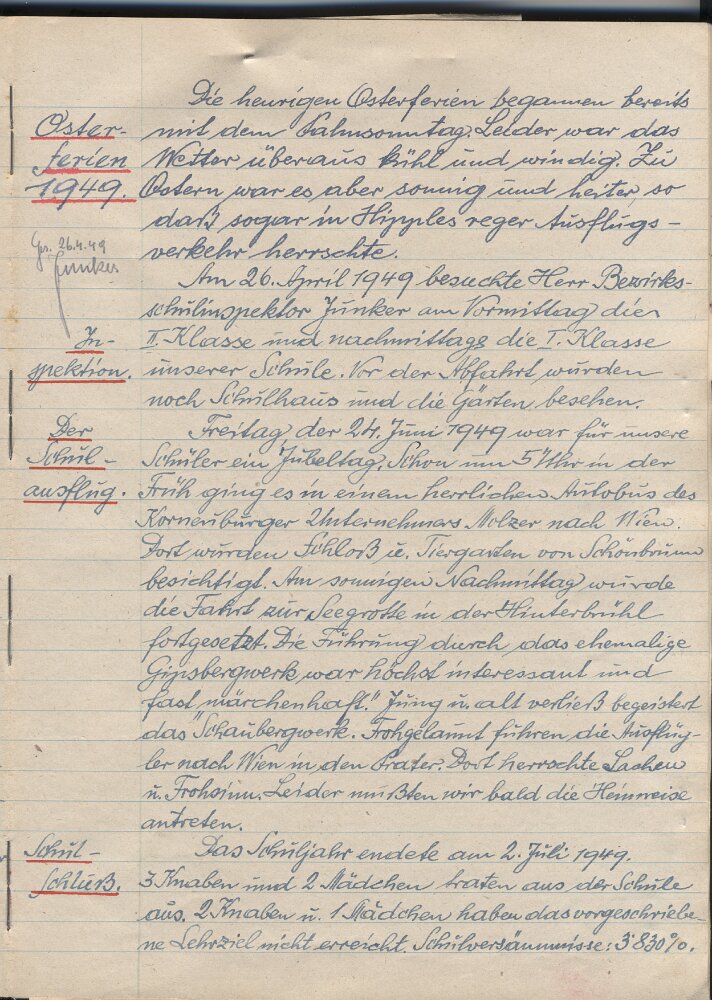 Die heurigen Osterferien begannen bereits
Oster- mit dem Palmsonntag. Leider war das
ferien Wetter überaus kühl und windig. Zu
1949. Ostern war es aber sonnig und heiter, so
daß sogar in Hipples reger Ausflugs-
verkehr herrschte.
Ges. 26.4.49
Junker
Am 26. April 1949 besuchte Herr Bezirks-
schulinspektor Junker am Vormittag die
In- II. Klasse und nachmittags die I. Klasse
spektion. unserer Schule. Vor der Abfahrt wurden
noch Schulhaus und die Gärten besehen.
Der Freitag, der 24. Juni 1949 war für unsere
Schul- Schüler ein Jubeltag. Schon um 5 Uhr in der
ausflug. Früh ging es in einem herrlichen Autobus des
Korneuburger Unternehmers Molzer nach Wien.
Dort wurden Schloß u. Tiergarten von Schönbrunn
besichtigt. Am sonnigen Nachmittag wurde
die Fahrt zur Seegrotte in der Hinterbrühl
fortgesetzt. Die Führung durch das ehemalige
Gipsbergwerk war höchst interessant und
fast „märchenhaft." Jung u. alt verließ begeistert
das Schaubergwerk. Frohgelaunt fuhren die Ausflüg-
ler nach Wien in den Prater. Dort herrschte Lachen
u. Frohsinn. Leider mußten wir bald die Heimreise
antreten.
Schul- Das Schuljahr endete am 2. Juli 1949.
schluß. 3 Knaben und 2 Mädchen traten aus der Schule
aus. 2 Knaben u. 1 Mädchen haben das vorgeschriebe-
ne Lehrziel nicht erreicht. Schulversäumnisse: 3'830%.